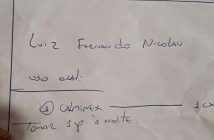 Luiz Fernando Nicolau
uso oral:
① CALMINEX ——— 1 cx
TOMAR 1 cp à NOITE.